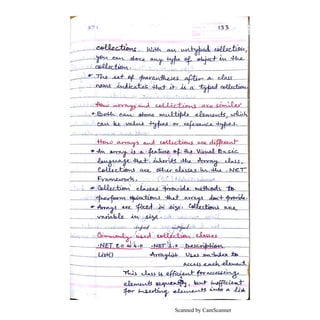 133
collections. With an untyped collection,
you can store any type of object in the
collection.
• The set of parantheses after a class
name indicates that it is a typed collection
How arrays and collections are similar
• Both can store multiple elements, which
can be value types or reference types.
How arrays and collections are different
• An array is a feature of the Visual Basic
language that inherits the Array class.
Collections are other classes in the .NET
Framework.
• Collection classes provide methods to
perform operations that arrays don't provide.
• Arrays are fixed in size. Collections are
variable in size.
Commonly used collection classes
.NET .NET Description
List() Arraylist Uses an index to
access each element
This class is efficient for accessing
elements sequentially, but inefficient
for inserting elements into a list
Scanned by CamScanner